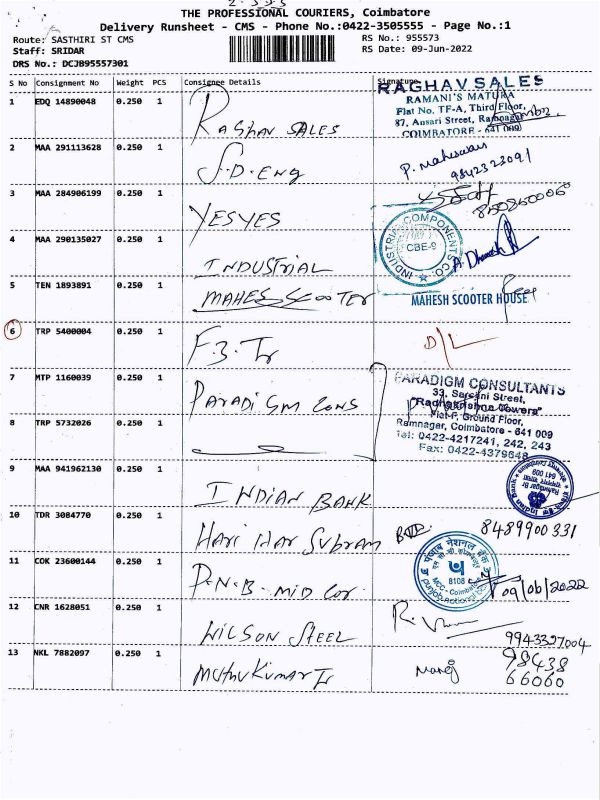 THE PROFESSIONAL COURIERS, Coimbatore
Delivery Runsheet - CMS - Phone No.:0422-3505555 - Page No.:1
Route: SASTHIRI ST CMS RS No.: 955573
Staff: SRIDAR RS Date: 09-Jun-2022
DRS No.: DCJB95557301
S No Consignment No Weight PCS Consignee Details Signature
1 EDQ 14890048 0.250 1 RAGHAV SALES
RAGHAV SALES
RAMANI'S MATURA
Flat No. TF-A, Third Floor,
87, Ansari Street, Ramnagar
COIMBATORE - 641 009
2 MAA 291113628 0.250 1 S.D. ENG P. Maheswari
9842323091
3 MAA 284906199 0.250 1 YESYES
4 MAA 290135027 0.250 1 INDUSTRIAL
INDUSTRIAL COMPONENTS CO.
CBE-9
5 TEN 1893891 0.250 1 MAHESH SCOOTER MAHESH SCOOTER HOUSE
6 TRP 5400004 0.250 1 F.3. Tr D/L
7 MTP 1160039 0.250 1 PARADIGM CONS
PARADIGM CONSULTANTS
33, Sarojini Street,
"Radhakrishna Towers"
Flat-F, Ground Floor,
Ramnagar, Coimbatore - 641 009
Tel: 0422-4217241, 242, 243
Fax: 0422-4379648
8 TRP 5732026 0.250 1
9 MAA 941962130 0.250 1 INDIAN BANK
641 009
10 TDR 3084770 0.250 1 HARI HAR SUBRAM 8489900331
11 COK 23600144 0.250 1 P.N.B. MID COR 09/06/2022
पंजाब नैशनल बैंक
8108
MCC - Coimbatore
punjab national bank
12 CNR 1628051 0.250 1 WILSON STEEL
9943327004
13 NKL 7882097 0.250 1 MUTHUKUMAR Tr Manoj 98438
66060